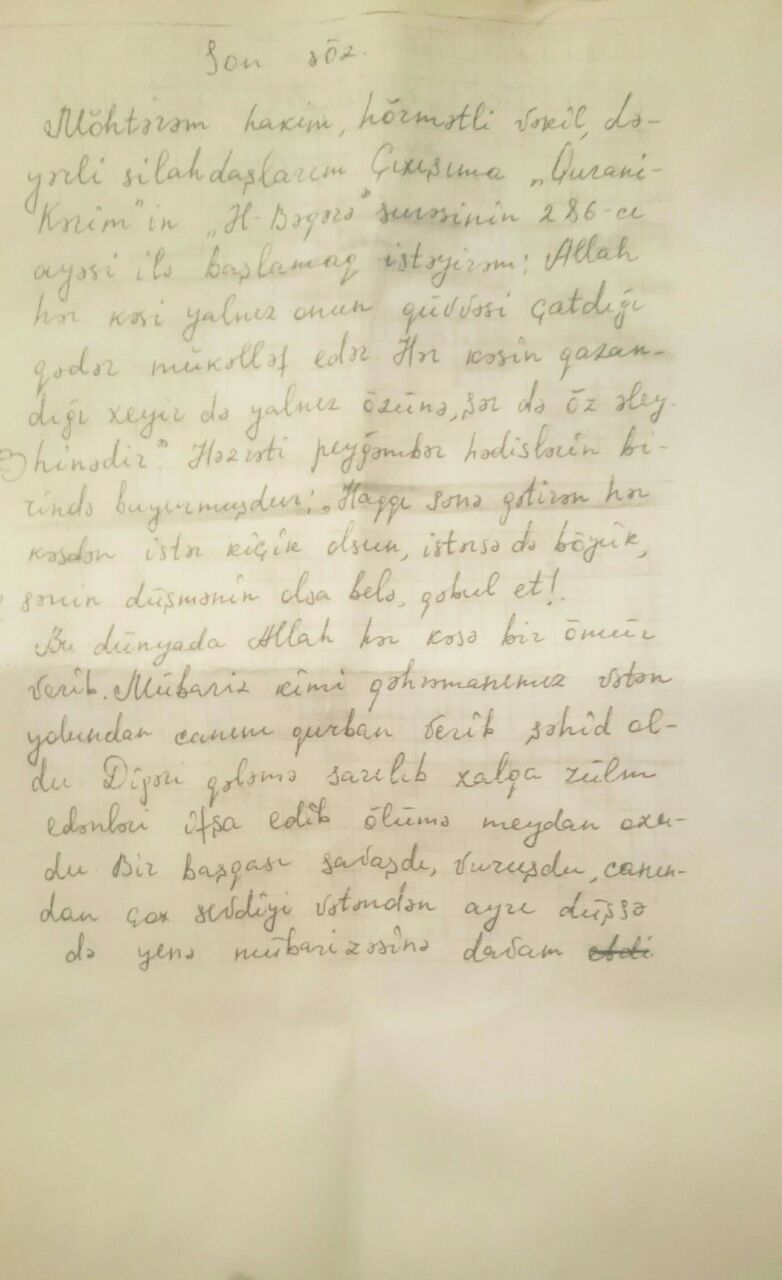 Son söz.
Möhtərəm hakim, hörmətli vəkil, də-
yərli silahdaşlarım Çıxışıma „Qurani-
Kərim"in „Əl-Bəqərə" surəsinin 286-cı
ayəsi ilə başlamaq istəyirəm: Allah
hər kəsi yalnız onun qüvvəsi çatdığı
qədər mükəlləf edər. Hər kəsin qazan-
dığı xeyir də yalnız özünə, şər də öz əley-
hinədir." Həzrəti peyğəmbər hədislərin bi-
rində buyurmuşdur: „Haqqı sənə gətirən hər
kəsdən istər kiçik olsun, istərsə də böyük,
sənin düşmənin olsa belə, qəbul et!
Bu dünyada Allah hər kəsə bir ömür
verib. Mübariz kimi qəhrəmanımız vətən
yolundan canını qurban verib şəhid ol-
du Digəri qələmə sarılıb xalqa zülm
edənləri ifşa edib ölümə meydan oxu-
du Bir başqası savaşdı, vuruşdu, canın-
dan çox sevdiyi vətəndən ayrı düşsə
də yenə mübarizəsinə davam etdi